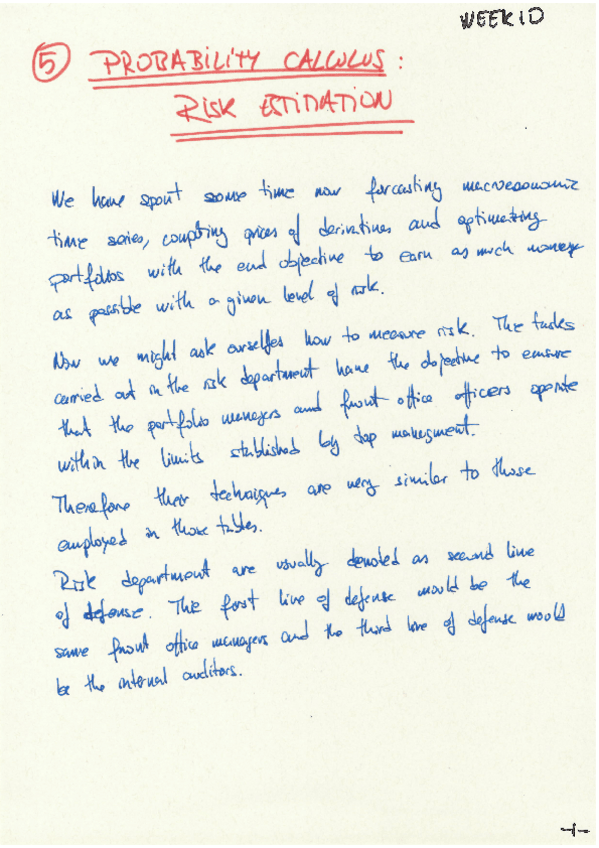 WEEK10
5 PROBABILITY CALCULUS:
RISK ESTIMATION
We have spent some time now forcasting macroeconomic
time series, computing prices of derivatives and optimizing
portfolios with the end objective to earn as much money
as possible with a given level of risk.
Now we might ask ourselfes how to measure risk. The tasks
carried out in the risk department have the objective to ensure
that the portfolio managers and front office officers operate
within the limits stablished by top management.
Therefore their techniques are very similar to those
employed in those tables.
Risk department are usually denoted as second line
of defense. The first line of defense would be the
same front office managers and the third line of defense would
be the internal auditors.
-1-